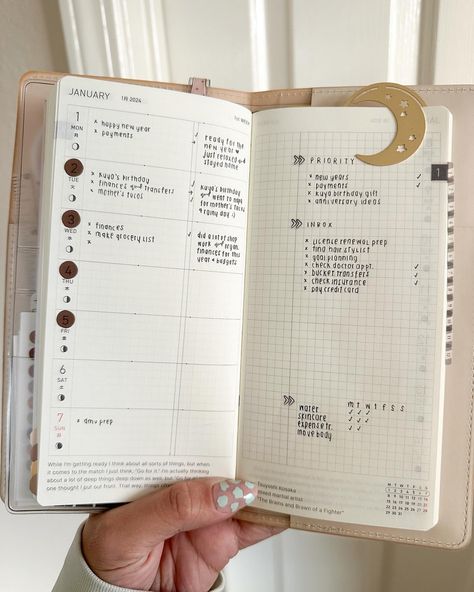 JANUARY 1月 2024
1
MON
月
x happy new year
x payments
ready for the
new year
just relaxed and
stayed home
2
TUE
火
x kuya's birthday
x finances and transfers
x mother's tacos
kuya's birthday
and went to
for mother's tacos
a rainy day :)
3
WED
水
x finances
x make grocery list
x
did a lot of shop
work and organ.
finances for this
year & budgets
4
THU
木
5
FRI
金
6
SAT
土
7
SUN
日
x dmv prep
While I'm getting ready I think about all sorts of things, but when
it comes to the match I just think, "Go for it." I'm actually thinking
about a lot of deep things deep down as well, but "Go for it" is the
one thought I put out front. That way, things
PRIORITY
x new years ✓
x payments ✓
x kuya birthday gift
x anniversary ideas
INBOX
x license renewal prep
x find hair stylist
x goal planning
x check doctor appt. ✓
x bucket transfers ✓
x check insurance ✓
x pay credit card
m t w t f s s
water ✓ ✓ ✓
skincare ✓ ✓
expense tr. ✓ ✓
move body
1
Tsuyoshi Kosaka
mixed martial artist
"The Brains and Brawn of a Fighter"
M T W T F S S
1 2 3 4 5 6 7
8 9 10 11 12 13 14
15 16 17 18 19 20 21
22 23 24 25 26 27 28
29 30 31